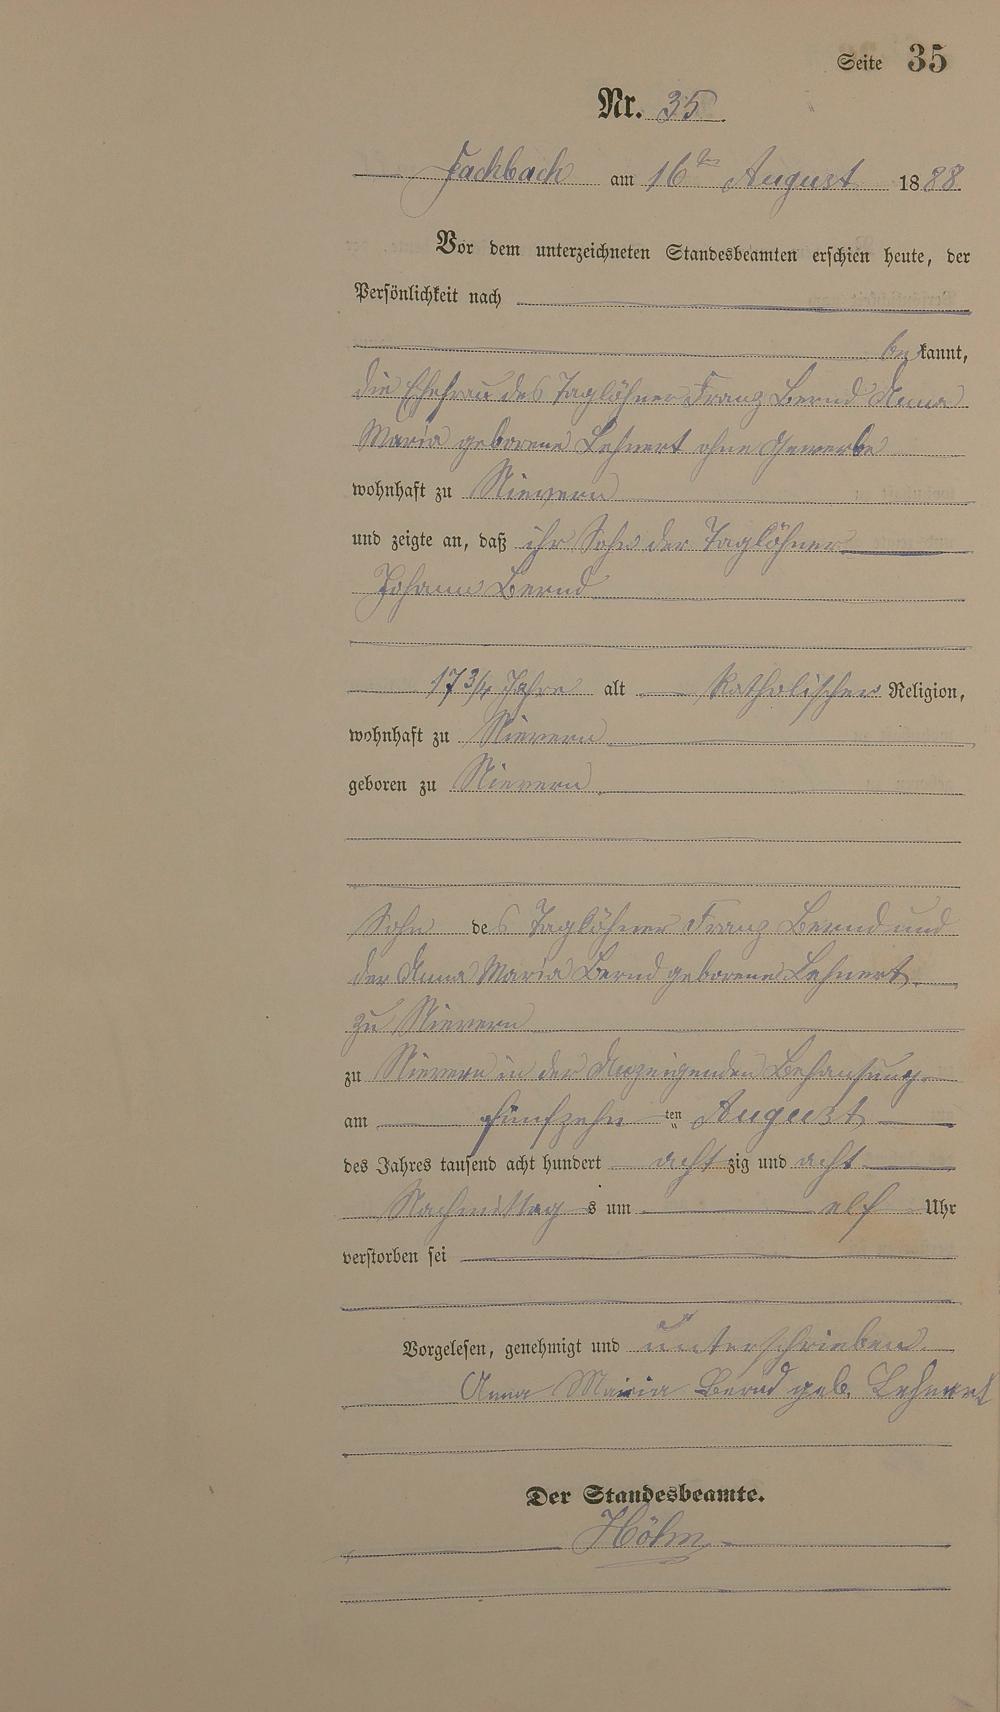 Seite 35
Nr. 35
Fachbach am 16ten August 1888
Vor dem unterzeichneten Standesbeamten erschien heute, der
Persönlichkeit nach
bekannt,
die Ehefrau des Taglöhner Franz Bernd Anna
Maria geborene Lehnert ohne Gewerbe
wohnhaft zu Nievern
und zeigte an, daß ihr Sohn der Taglöhner
Johann Bernd
17 3/4 Jahre alt katholischer Religion,
wohnhaft zu Nievern
geboren zu Nievern
Sohn des Taglöhner Franz Bernd und
der Anna Maria Bernd geborene Lehnert
zu Nievern
zu Nievern in der Anzeigenden Behausung
am fünfzehn ten August
des Jahres tausend acht hundert acht zig und acht
Nachmittag s um elf Uhr
verstorben sei
Vorgelesen, genehmigt und unterschrieben
Anna Maria Bernd geb. Lehnert
Der Standesbeamte.
Höhn